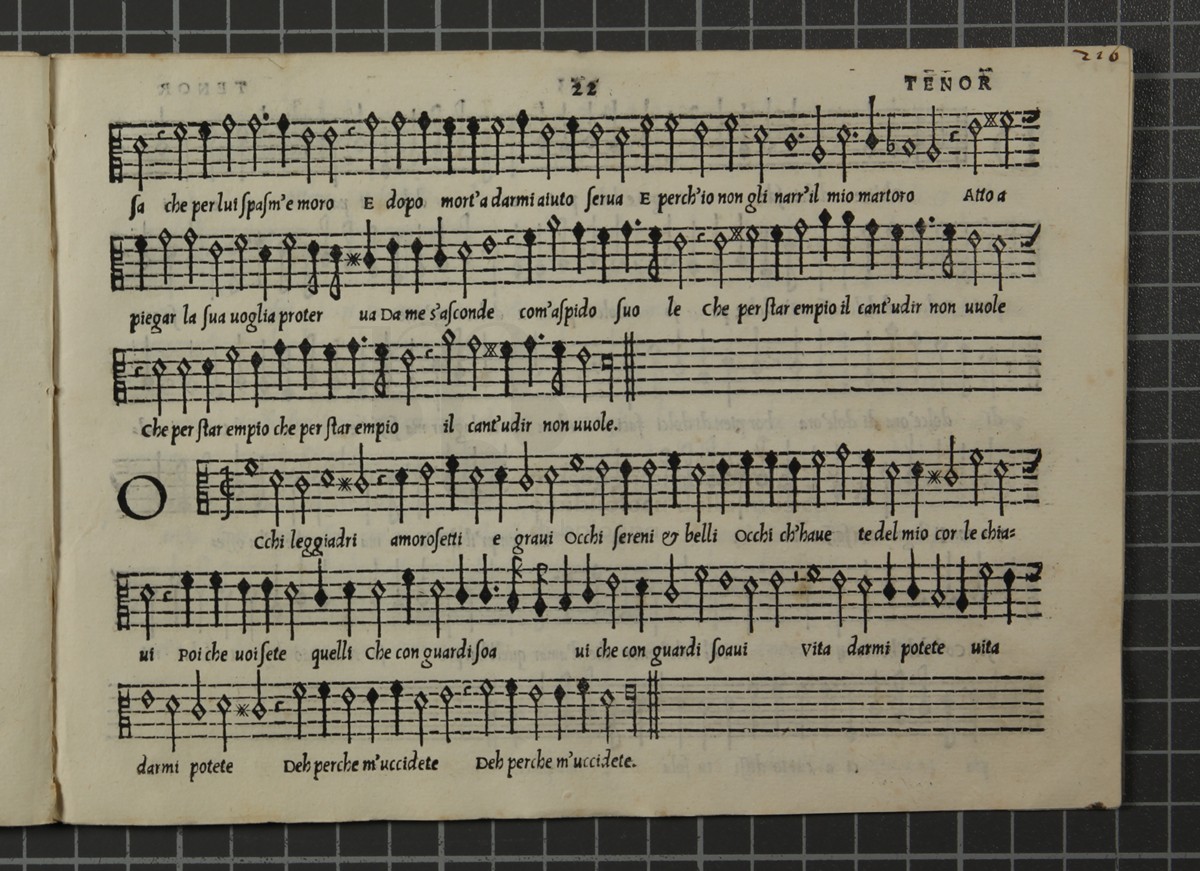 216
22 TENOR
sa che per lui spasm'e moro E dopo mort'a darmi aiuto serua E perch'io non gli narr'il mio martoro Atto a
piegar la sua uoglia proter ua Da me s'asconde com'aspido suo le Che per star empio il cant'udir non uuole
Che per star empio che per star empio il cant'udir non uuole.
O Cchi leggiadri amorosetti e graui Occhi sereni & belli Occhi ch'haue te del mio cor le chia=
ui Poi che uoi sete quelli Che con guardi soa ui che con guardi soaui Vita darmi potete uita
darmi potete Deh perche m'uccidete Deh perche m'uccidete.